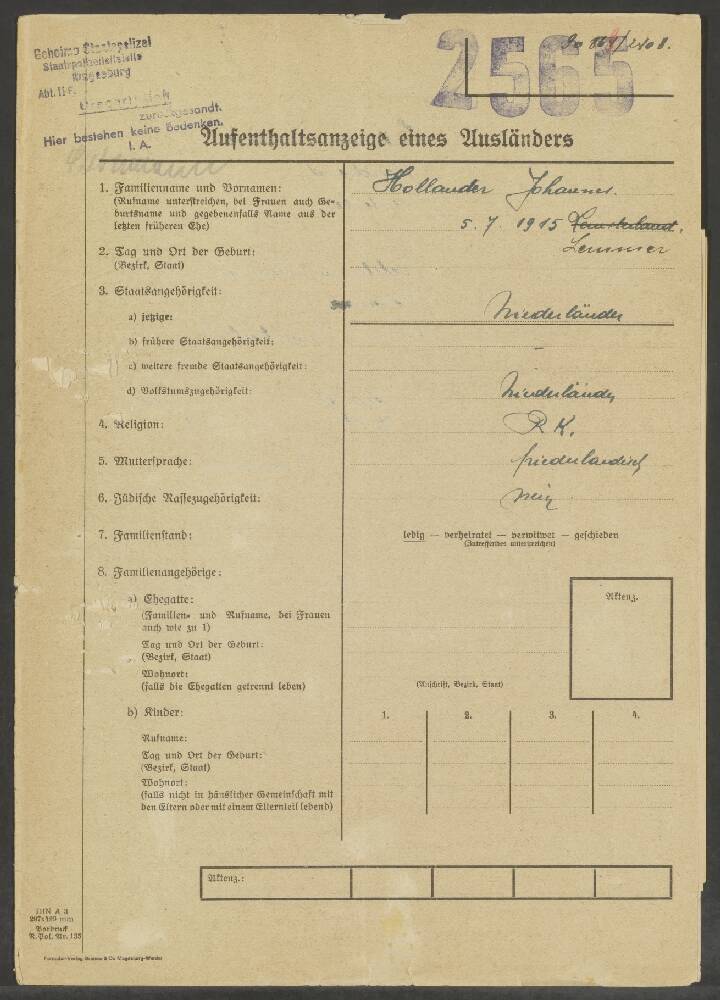 Geheime Staatspolizei
Staatspolizeileitstelle
Magdeburg
Abt. II F.
Urschriftlich
zurückgesandt.
Hier bestehen keine Bedenken.
I. A.
2565
Aufenthaltsanzeige eines Ausländers
1. Familienname und Vornamen: Hollander Johannes.
(Rufname unterstreichen, bei Frauen auch Ge-
burtsname und gegebenenfalls Name aus der
letzten früheren Ehe)
5. 7 1915 Lemsterland.
2. Tag und Ort der Geburt: Lemmer
(Bezirk, Staat)
3. Staatsangehörigkeit:
a) jetzige: Niederländer
b) frühere Staatsangehörigkeit: —
c) weitere fremde Staatsangehörigkeit:
d) Volkstumszugehörigkeit: Niederländer
4. Religion: R. K.
5. Muttersprache: niederländisch
6. Jüdische Rassezugehörigkeit: nein
7. Familienstand: ledig — verheiratet — verwitwet — geschieden
(Zutreffendes unterstreichen)
8. Familienangehörige:
a) Ehegatte:
(Familien- und Rufname, bei Frauen
auch wie zu 1)
Aktenz.
Tag und Ort der Geburt:
(Bezirk, Staat)
Wohnort:
(falls die Ehegatten getrennt leben)
(Anschrift, Bezirk, Staat)
b) Kinder: 1. 2. 3. 4.
Rufname:
Tag und Ort der Geburt:
(Bezirk, Staat)
Wohnort:
(falls nicht in häuslicher Gemeinschaft mit
den Eltern oder mit einem Elternteil lebend)
Aktenz.:
DIN A 3
297×420 mm
Vordruck
R. Pol. Nr. 135